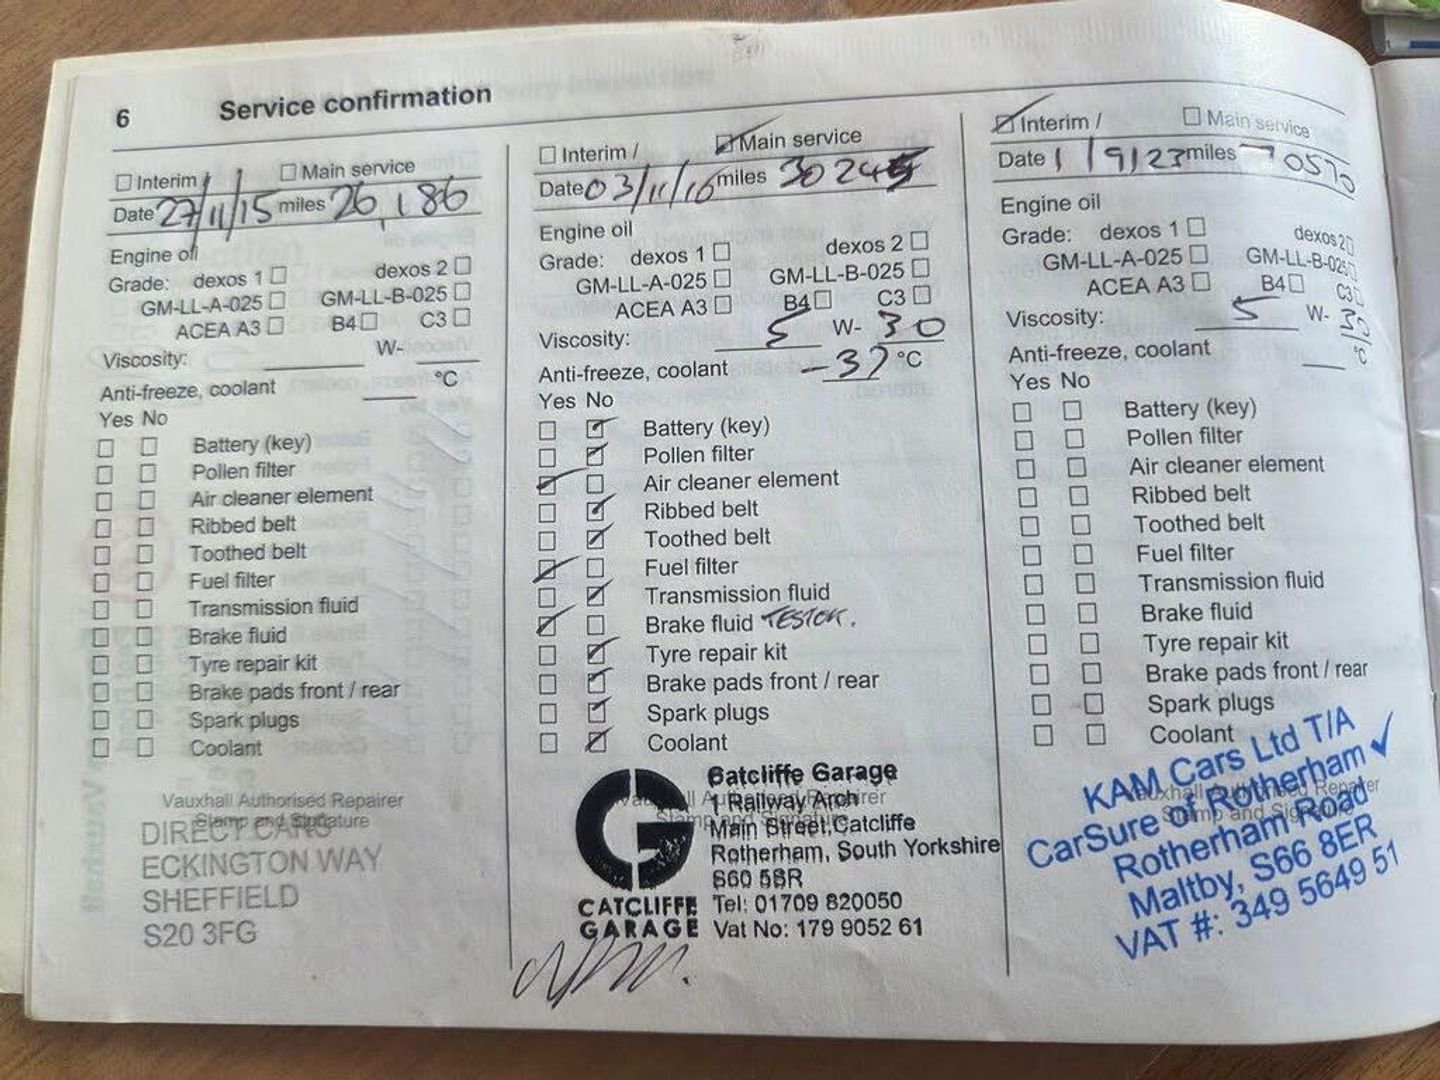 6 Service confirmation
Interim / Main service
Date 27/11/15 miles 26,186
Engine oil
Grade: dexos 1 dexos 2
GM-LL-A-025 GM-LL-B-025
ACEA A3 B4 C3
Viscosity: W-
Anti-freeze, coolant °C
Yes No
Battery (key)
Pollen filter
Air cleaner element
Ribbed belt
Toothed belt
Fuel filter
Transmission fluid
Brake fluid
Tyre repair kit
Brake pads front / rear
Spark plugs
Coolant
Vauxhall Authorised Repairer
Stamp and Signature
DIRECT CARS
ECKINGTON WAY
SHEFFIELD
S20 3FG
Interim / Main service
Date 03/11/16 miles 30245
Engine oil
Grade: dexos 1 dexos 2
GM-LL-A-025 GM-LL-B-025
ACEA A3 B4 C3
Viscosity: 5 W- 30
Anti-freeze, coolant -37 °C
Yes No
Battery (key)
Pollen filter
Air cleaner element
Ribbed belt
Toothed belt
Fuel filter
Transmission fluid
Brake fluid TESTED.
Tyre repair kit
Brake pads front / rear
Spark plugs
Coolant
Vauxhall Authorised Repairer
Stamp and Signature
Catcliffe Garage
1 Railway Arch
Main Street, Catcliffe
Rotherham, South Yorkshire
S60 5SR
Tel: 01709 820050
Vat No: 179 9052 61
CATCLIFFE
GARAGE
Interim / Main service
Date 1/9/23 miles 70570
Engine oil
Grade: dexos 1 dexos 2
GM-LL-A-025 GM-LL-B-025
ACEA A3 B4 C3
Viscosity: 5 W- 30
Anti-freeze, coolant °C
Yes No
Battery (key)
Pollen filter
Air cleaner element
Ribbed belt
Toothed belt
Fuel filter
Transmission fluid
Brake fluid
Tyre repair kit
Brake pads front / rear
Spark plugs
Coolant
Vauxhall Authorised Repairer
Stamp and Signature
KAM Cars Ltd T/A
CarSure of Rotherham
Rotherham Road
Maltby, S66 8ER
VAT #: 349 5649 51